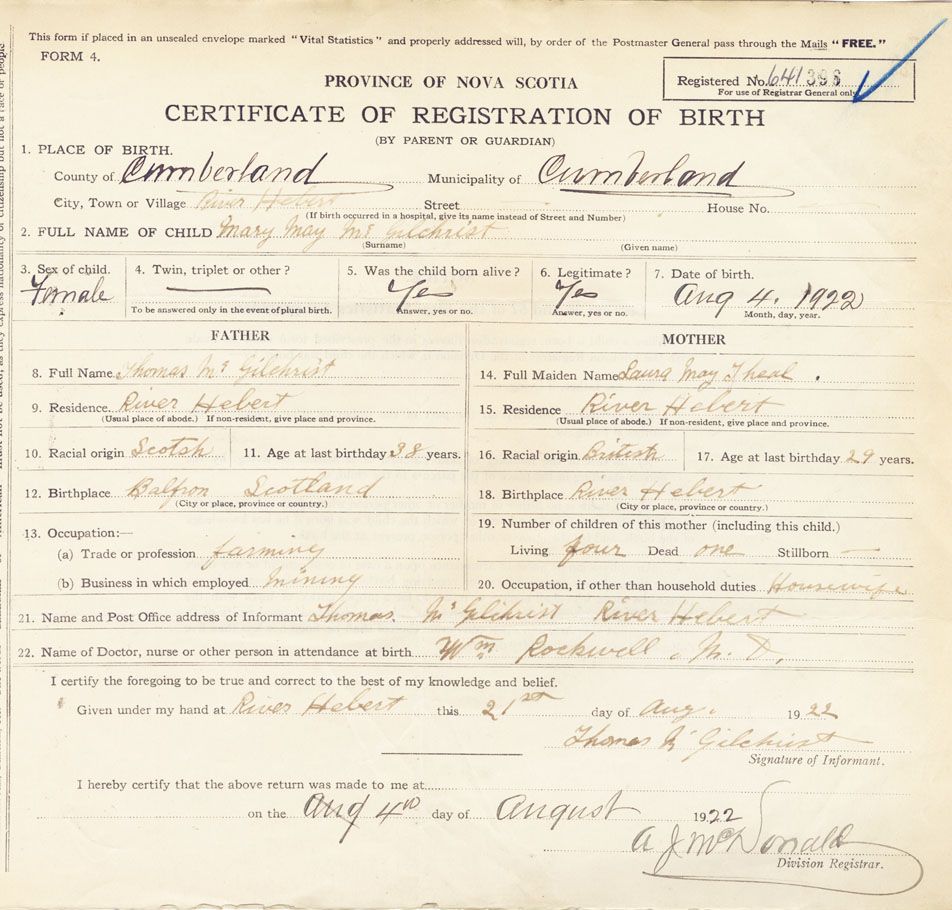 This form if placed in an unsealed envelope marked "Vital Statistics" and properly addressed will, by order of the Postmaster General pass through the Mails "FREE."
FORM 4.
PROVINCE OF NOVA SCOTIA
Registered No. 641396
For use of Registrar General only
CERTIFICATE OF REGISTRATION OF BIRTH
(BY PARENT OR GUARDIAN)
1. PLACE OF BIRTH.
County of Cumberland Municipality of Cumberland
City, Town or Village River Hebert Street House No.
(If birth occurred in a hospital, give its name instead of Street and Number)
2. FULL NAME OF CHILD Mary May Mc Gilchrist
(Surname) (Given name)
3. Sex of child. 4. Twin, triplet or other? 5. Was the child born alive? 6. Legitimate? 7. Date of birth.
Female — Yes Yes Aug 4. 1922
To be answered only in the event of plural birth. Answer, yes or no. Answer, yes or no. Month, day, year.
FATHER
8. Full Name Thomas Mc Gilchrist
9. Residence. River Hebert
(Usual place of abode.) If non-resident, give place and province.
10. Racial origin Scotsh 11. Age at last birthday 38 years.
12. Birthplace Balfron Scotland
(City or place, province or country.)
13. Occupation:—
(a) Trade or profession farming
(b) Business in which employed Mining
MOTHER
14. Full Maiden Name Laura May Theal.
15. Residence River Hebert
(Usual place of abode.) If non-resident, give place and province.
16. Racial origin British 17. Age at last birthday 29 years.
18. Birthplace River Hebert
(City or place, province or country.)
19. Number of children of this mother (including this child.)
Living four Dead one Stillborn —
20. Occupation, if other than household duties Housewife
21. Name and Post Office address of Informant Thomas. Mc Gilchrist River Hebert
22. Name of Doctor, nurse or other person in attendance at birth Wm Rockwell, M. D,
I certify the foregoing to be true and correct to the best of my knowledge and belief.
Given under my hand at River Hebert this 21st day of Aug. 1922
Thomas Mc Gilchrist
Signature of Informant.
I hereby certify that the above return was made to me at
on the Aug 4th day of August 1922
A J McDonald
Division Registrar.